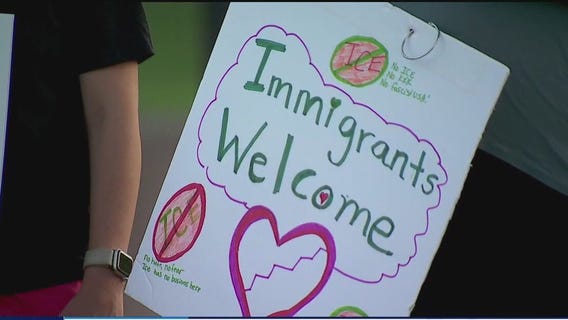 ICE
No ICE
No KKK
No fascist USA
Immigrants
Welcome
ICE
No hate, no fear
Ice has no business here